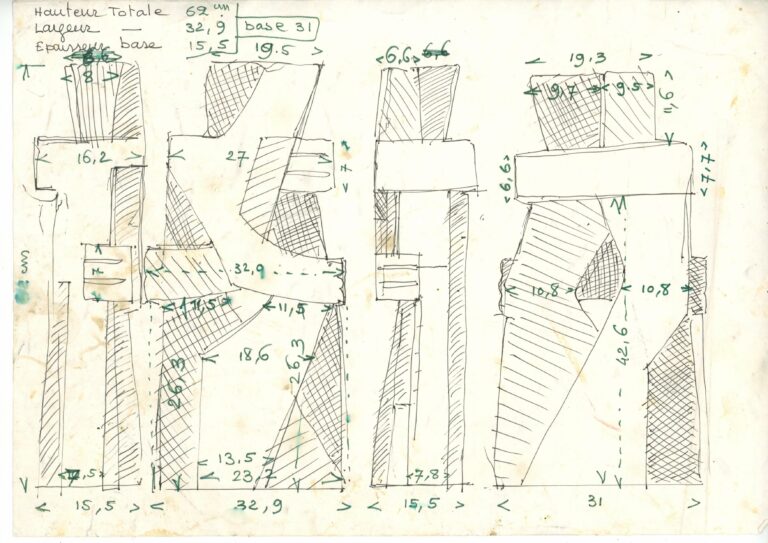 Hauteur Totale 62 cm
Largeur — 32,9 base 31
Epaisseur base 15,5
19.5
6,6
19.3
8
9,7
9.5
11,6
16,2
27
7
6,6
7,7
7
32,9
11,5
11,5
10,8
10,8
18,6
26,3
26,3
42,6
13,5
23,7
7,8
15,5
32,9
15,5
31